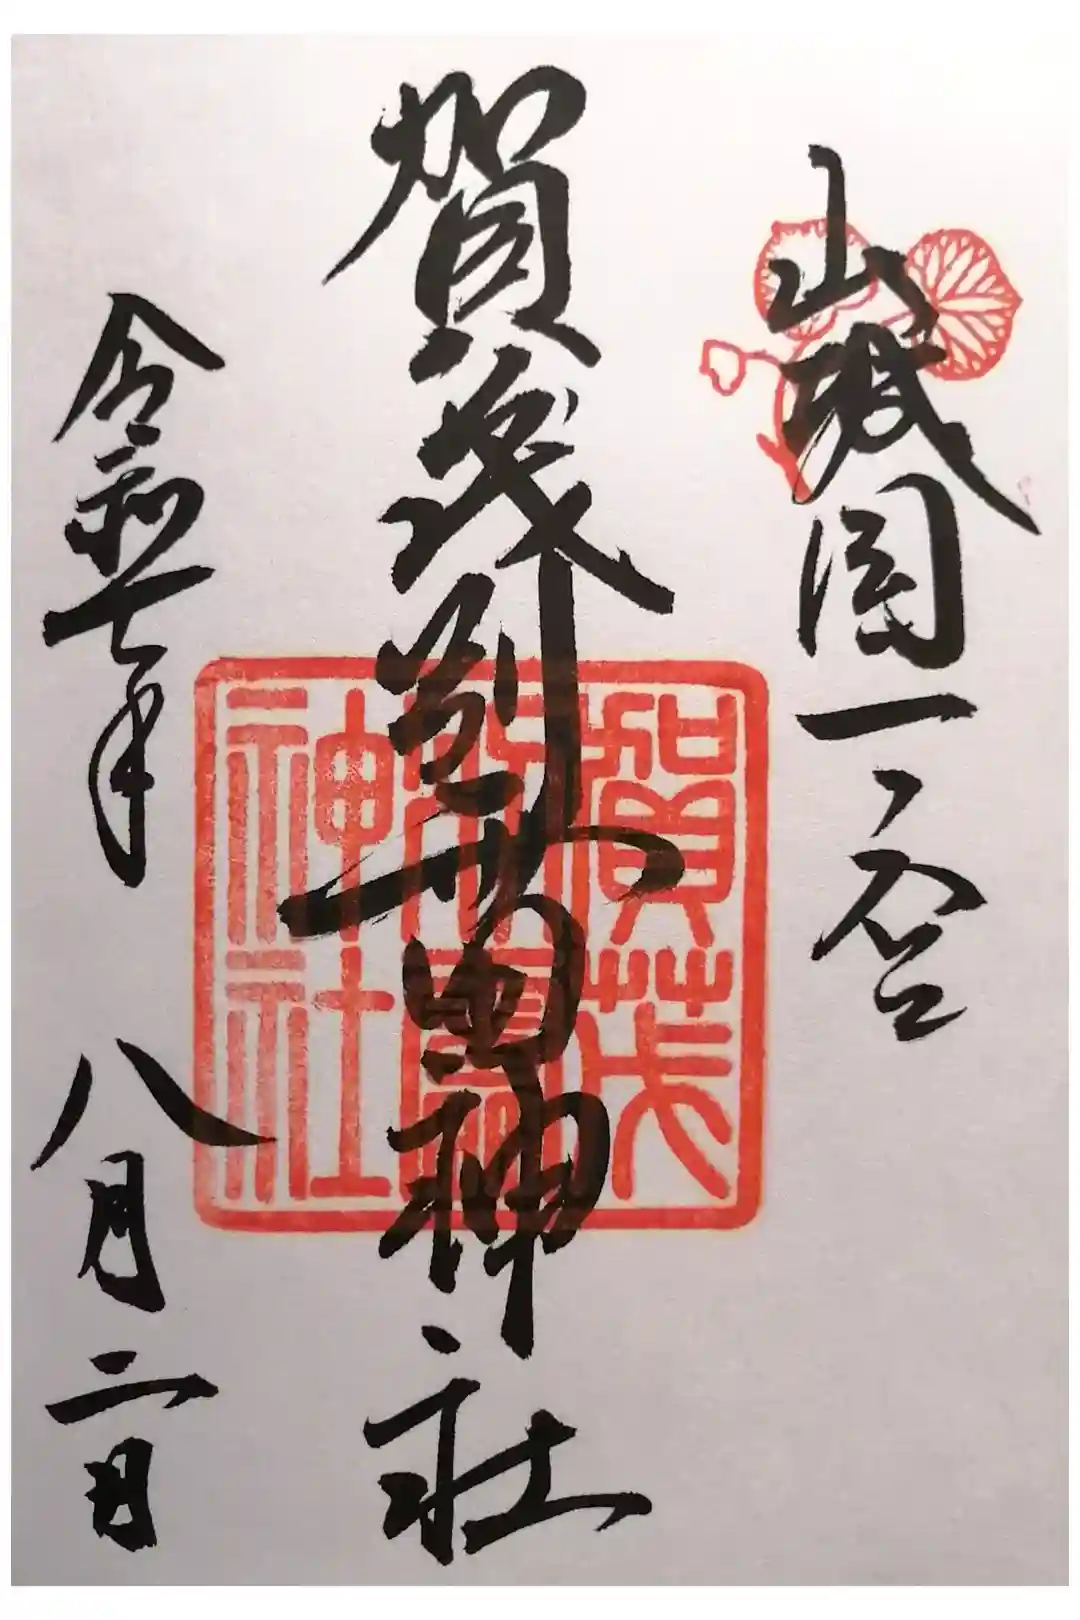 山城國一ノ宮
賀茂別雷神社
令和七年 八月二日
賀茂
別雷
神社